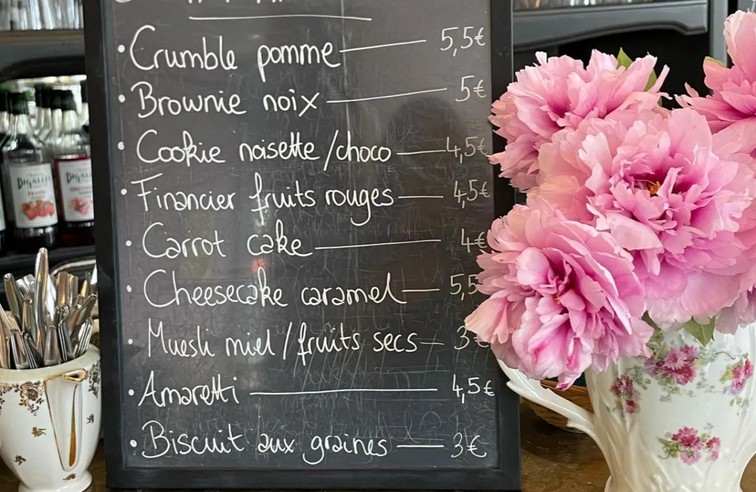 • Crumble pomme — 5,5€
• Brownie noix — 5€
• Cookie noisette/choco — 4,5€
• Financier fruits rouges — 4,5€
• Carrot cake — 4€
• Cheesecake caramel — 5,5
• Muesli miel/fruits secs — 3€
• Amaretti — 4,5€
• Biscuit aux graines — 3€